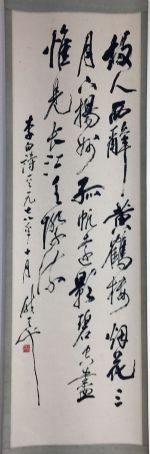 故人西辭黃鶴樓烟花三
月下揚州孤帆遠影碧空盡
惟見長江天際流
李白詩一九七六年十月